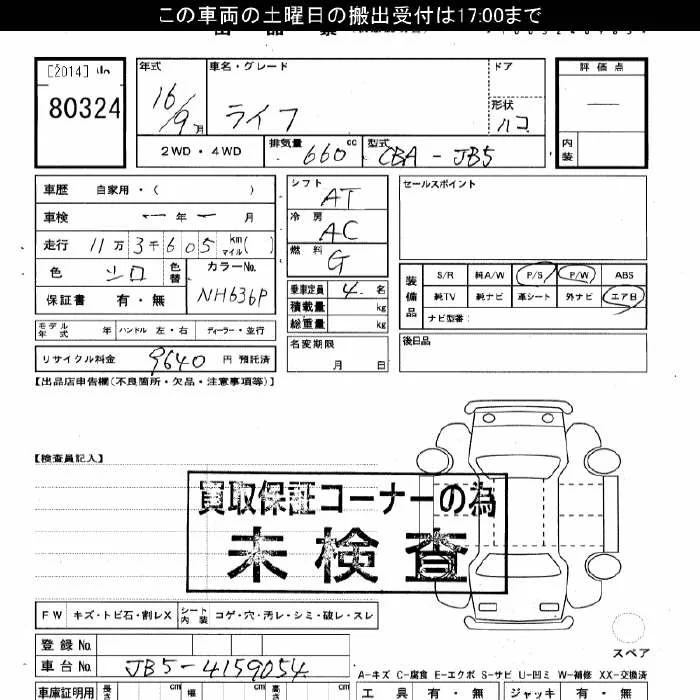 この車両の土曜日の搬出受付は17:00まで
[2014]
80324
年式 16/9月
車名・グレード ライフ
ドア
形状 ハコ
評価点 —
内装
2WD・4WD
排気量 660 cc
型式 CBA - JB5
車歴 自家用・( )
車検 ー年ー月
走行 11万3千605 km マイル( )
色 シロ 色替
カラーNo. NH636P
保証書 有・無
シフト AT
冷房 AC
燃料 G
乗車定員 4名
積載量 kg
総重量 kg
セールスポイント
装備品
S/R 純A/W P/S P/W ABS
純TV 純ナビ 革シート 外ナビ エアB
ナビ型番:
モデル年式 年 ハンドル 左・右 ディーラー・並行
リサイクル料金 9640 円 預託済
名変期限 月 日
後日品
【出品店申告欄(不良箇所・欠品・注意事項等)】
【検査員記入】
買取保証コーナーの為
未検査
FW キズ・トビ石・割レX シート内装 コゲ・穴・汚レ・シミ・破レ・スレ
登録No.
車台No. JB5-4159054
スペア
A-キズ C-腐食 E-エクボ S-サビ U-凹ミ W-補修 XX-交換済
車庫証明用 長さ cm 幅 cm 高さ cm
工具 有・無 ジャッキ 有・無